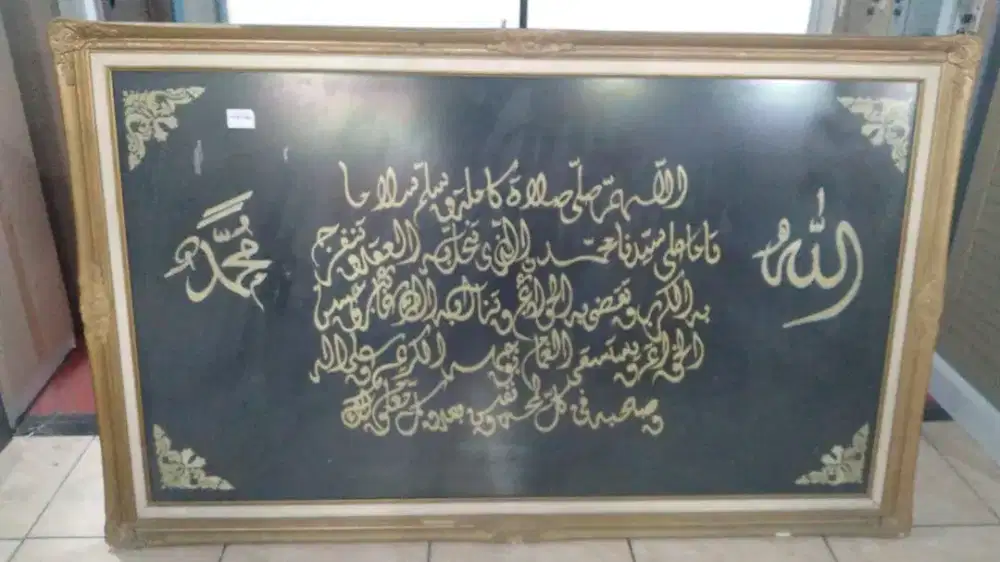 الله
اللّهمّ صلّى صلاة كاملة وسلم سلاما
تاما على سيدنا محمد الذي تنحل به العقد وتنفرج
به الكرب وتقضى به الحوائج وتنال به الرغائب وحسن
الخواتم ويستسقى الغمام بوجهه الكريم وعلى اله
وصحبه في كل لمحة ونفس بعدد كل معلوم لك
محمد